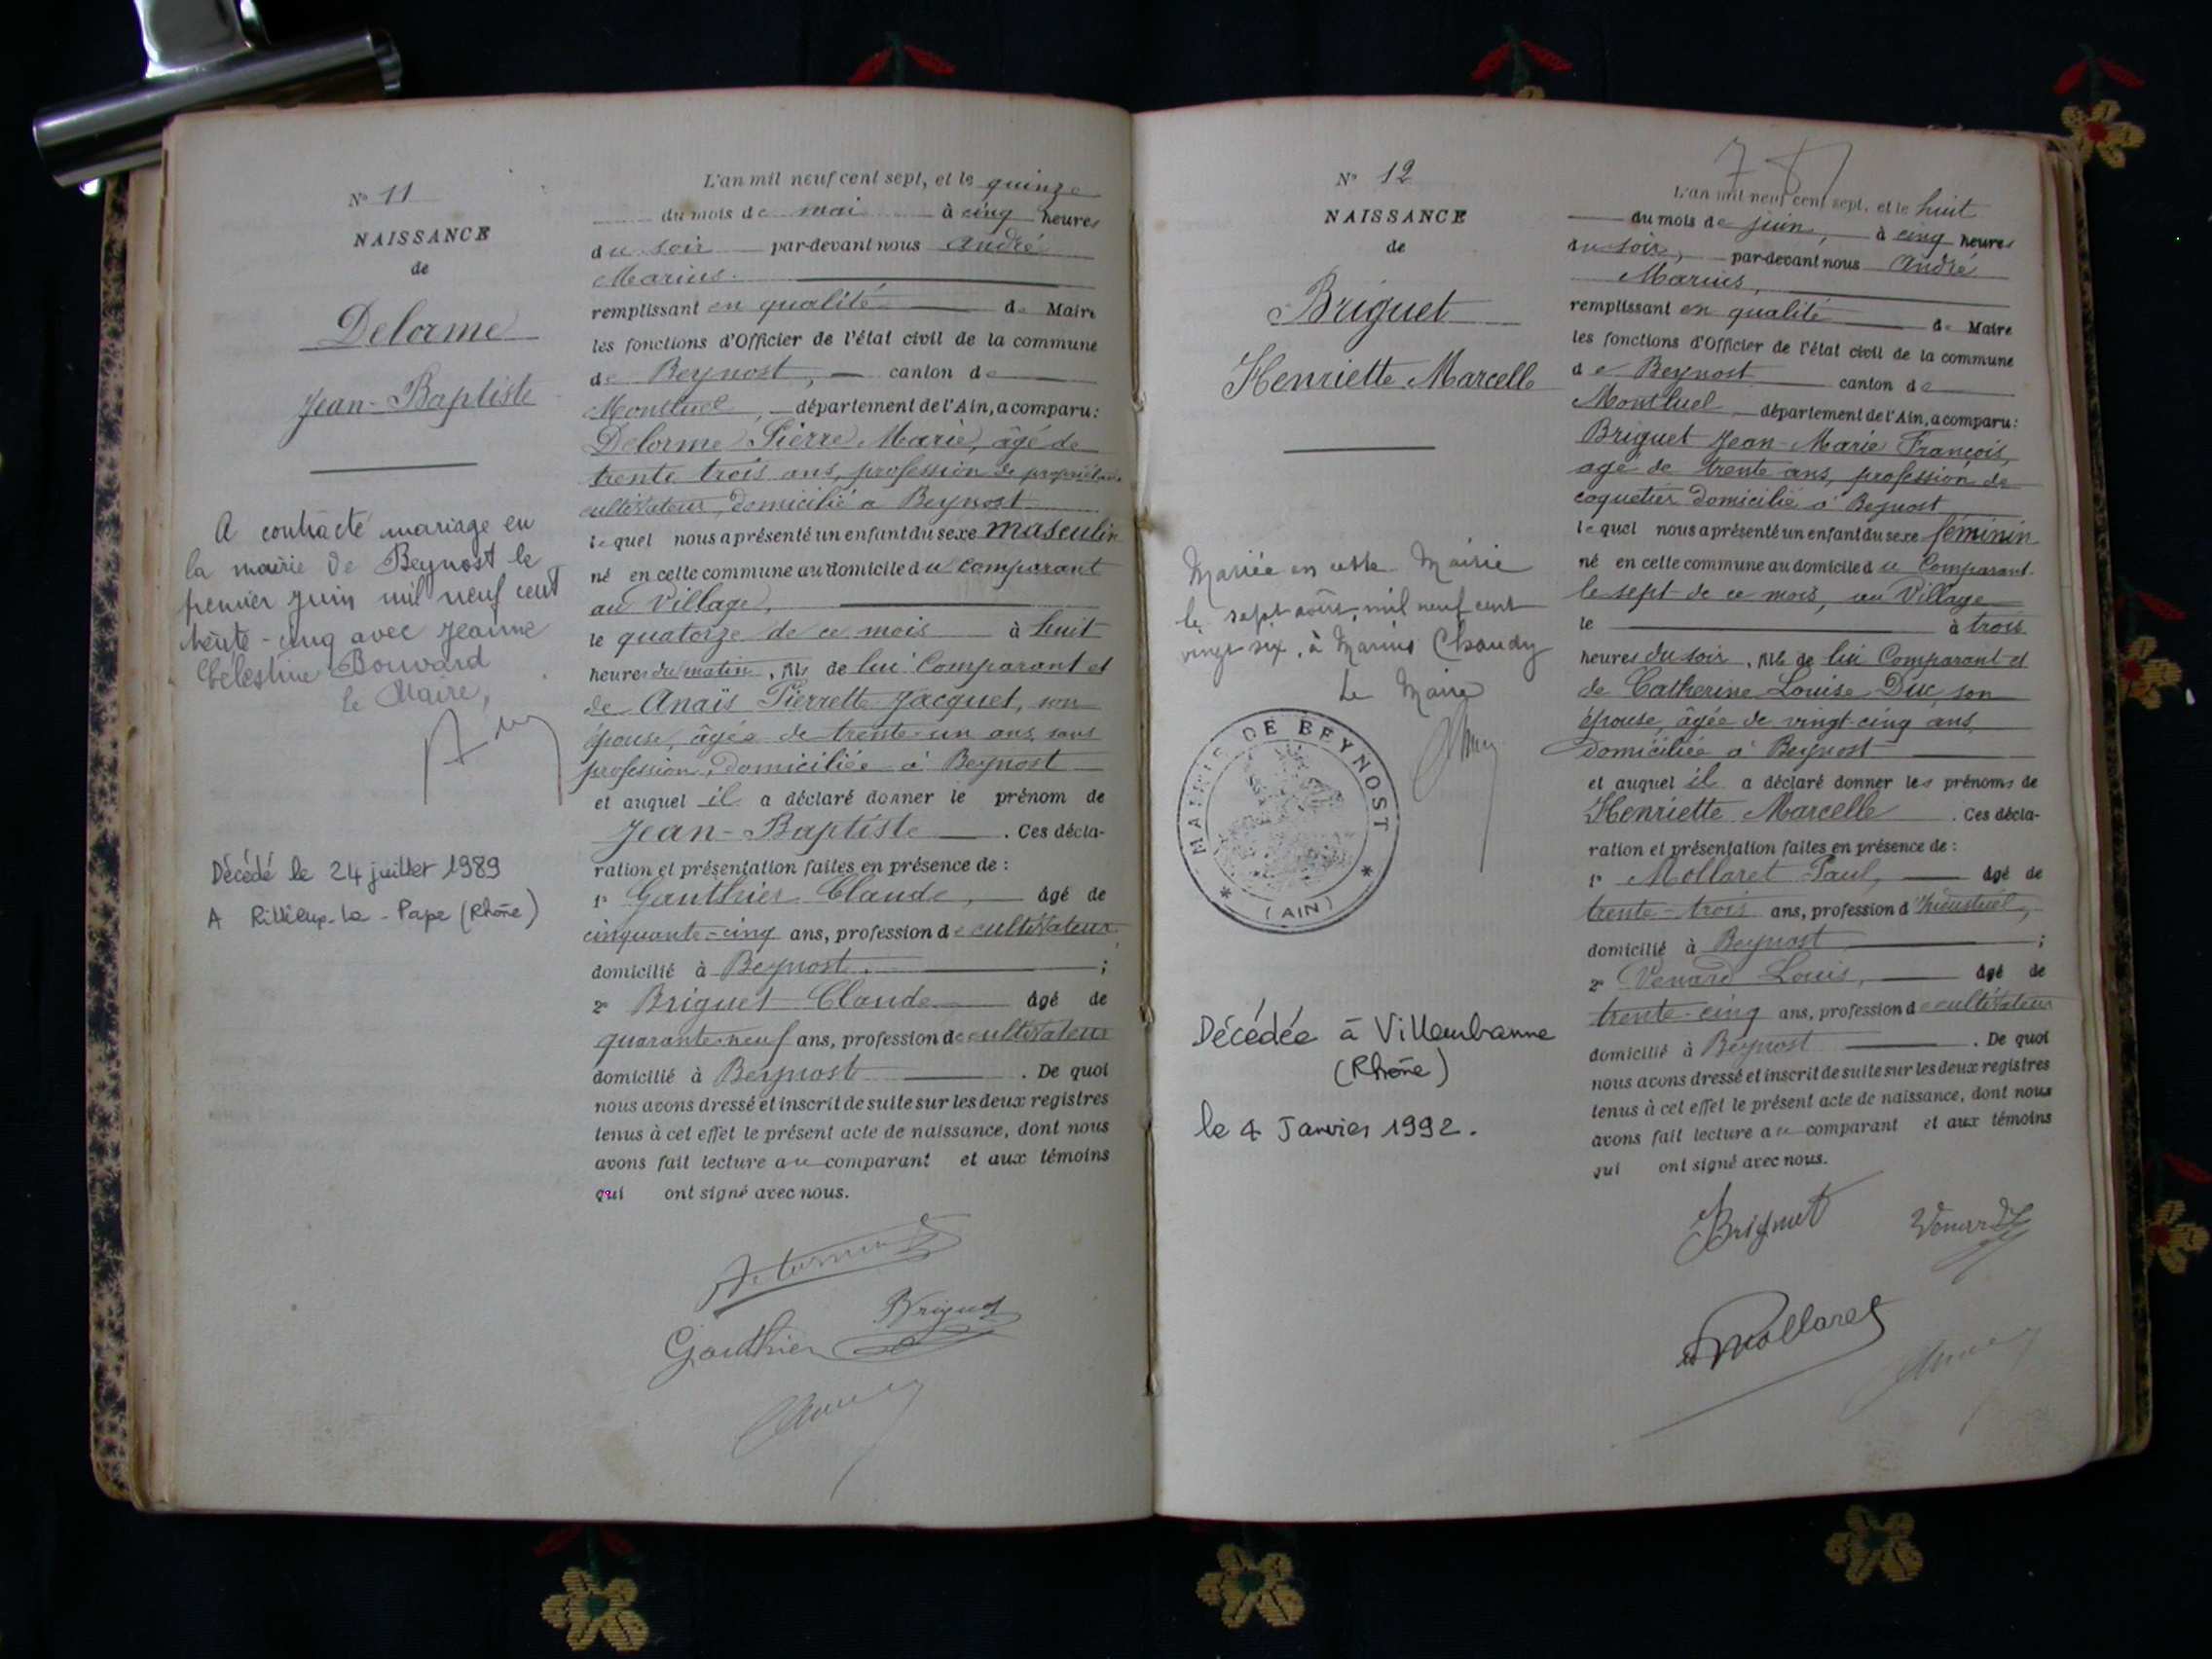 N° 11
NAISSANCE
de
Delorme
Jean-Baptiste
A contracté mariage en
la mairie de Beynost le
premier juin mil neuf cent
trente-cinq avec Jeanne
Célestine Bouvard
le Maire,
Décédé le 24 juillet 1989
A Rillieux-la-Pape (Rhône)
L'an mil neuf cent sept, et le quinze
du mois de mai à cinq heures
du soir par-devant nous André
Marius.
remplissant en qualité de Maire
les fonctions d'Officier de l'état civil de la commune
de Beynost, canton de
Montluel, département de l'Ain, a comparu:
Delorme Pierre Marie, âgé de
trente trois ans, profession de propriétaire
cultivateur, domicilié à Beynost
lequel nous a présenté un enfant du sexe masculin
né en cette commune au domicile du comparant
au Village,
le quatorze de ce mois à huit
heures du matin, fils de lui Comparant et
de Anaïs Pierrette Jacquet, son
épouse, âgée de trente-un ans, sans
profession, domiciliée à Beynost
et auquel il a déclaré donner le prénom de
Jean-Baptiste. Ces décla-
ration et présentation faites en présence de:
1° Gauthier Claude, âgé de
cinquante-cinq ans, profession de cultivateur
domicilié à Beynost. ;
2° Briguet Claude âgé de
quarante-neuf ans, profession de cultivateur
domicilié à Beynost. De quoi
nous avons dressé et inscrit de suite sur les deux registres
tenus à cet effet le présent acte de naissance, dont nous
avons fait lecture au comparant et aux témoins
qui ont signé avec nous.
Delorme
Briguet
Gauthier
N° 12
NAISSANCE
de
Briguet
Henriette Marcelle
Mariée en cette Mairie
le sept août mil neuf cent
vingt six, à Marius Chaudy
Le Maire
MAIRIE DE BEYNOST
* (AIN) *
Décédée à Villeurbanne
(Rhône)
le 4 Janvier 1992.
L'an mil neuf cent sept, et le huit
du mois de juin, à cinq heures
du soir, par-devant nous André
Marius,
remplissant en qualité de Maire
les fonctions d'Officier de l'état civil de la commune
de Beynost canton de
Montluel département de l'Ain, a comparu:
Briguet Jean-Marie François,
âgé de trente ans, profession de
coquetier domicilié à Beynost
lequel nous a présenté un enfant du sexe féminin
né en cette commune au domicile du Comparant
le sept de ce mois, au Village
le à trois
heures du soir, fille de lui Comparant et
de Catherine Louise Duc, son
épouse, âgée de vingt-cinq ans,
domiciliée à Beynost
et auquel il a déclaré donner les prénoms de
Henriette Marcelle. Ces décla-
ration et présentation faites en présence de:
1° Mollaret Paul, âgé de
trente-trois ans, profession d'industriel,
domicilié à Beynost ;
2° Venard Louis, âgé de
trente-cinq ans, profession de cultivateur
domicilié à Beynost. De quoi
nous avons dressé et inscrit de suite sur les deux registres
tenus à cet effet le présent acte de naissance, dont nous
avons fait lecture au comparant et aux témoins
qui ont signé avec nous.
Briguet Venard
Mollaret